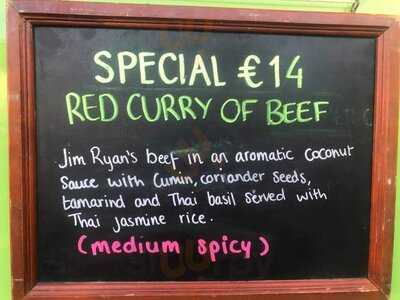 SPECIAL €14
RED CURRY OF BEEF
Jim Ryan's beef in an aromatic coconut
sauce with Cumin, coriander seeds,
tamarind and Thai basil served with
Thai jasmine rice.
(medium spicy)